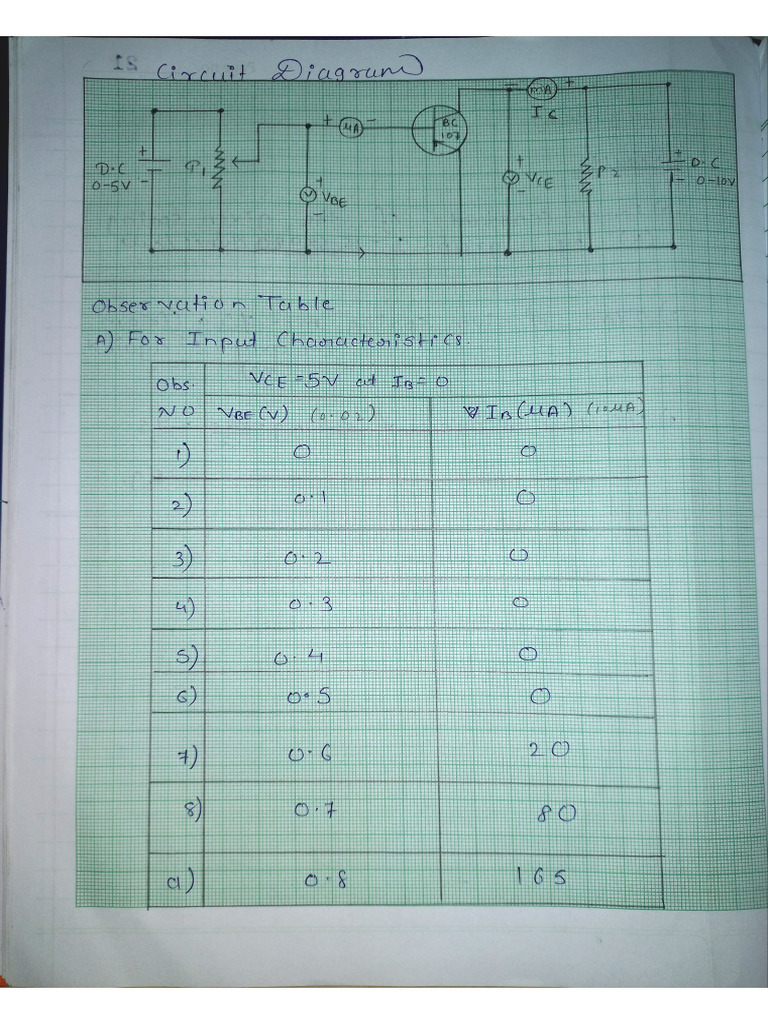 21
Circuit Diagram
mA
+
-
IC
BC
107
+ μA -
+
D.C
0-5V
-
P1
+
VBE
-
+
VCE
-
P2
+
D.C
0-10V
-
Observation Table
A) For Input Characteristics.
Obs. NO
VCE = 5V at IB = 0
VBE (V) (0.02) IB (μA) (10μA)
1) 0 0
2) 0.1 0
3) 0.2 0
4) 0.3 0
5) 0.4 0
6) 0.5 0
7) 0.6 20
8) 0.7 80
9) 0.8 165